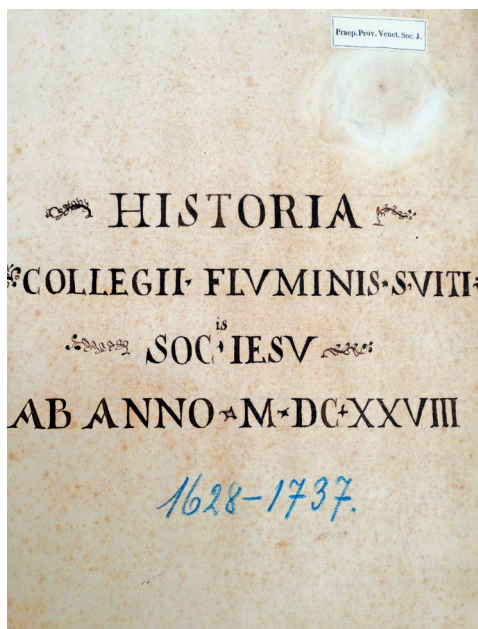 Praep. Prov. Venet. Soc. J.
HISTORIA
COLLEGII· FLVMINIS·S·VITI·
SOC·is IESV
AB ANNO M DC XXVIII
1628-1737.